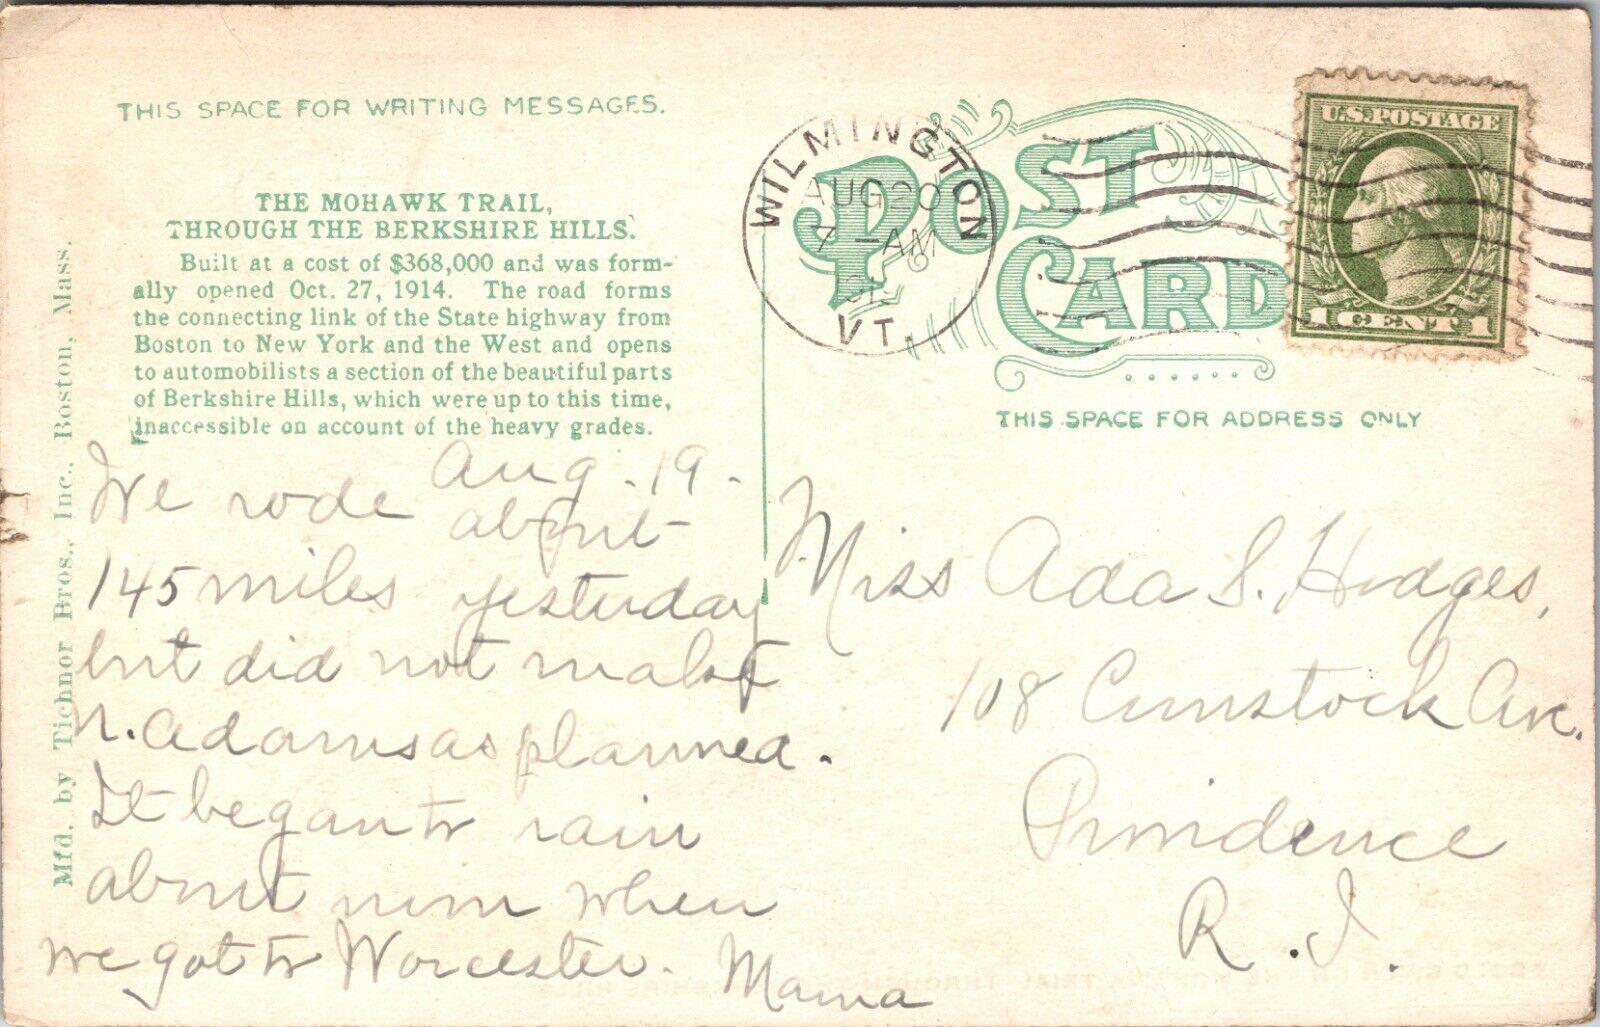 THIS SPACE FOR WRITING MESSAGES.
THE MOHAWK TRAIL,
THROUGH THE BERKSHIRE HILLS.
Built at a cost of $368,000 and was form-
ally opened Oct. 27, 1914. The road forms
the connecting link of the State highway from
Boston to New York and the West and opens
to automobilists a section of the beautiful parts
of Berkshire Hills, which were up to this time,
inaccessible on account of the heavy grades.
Mfd. by Tichnor Bros., Inc., Boston, Mass.
Aug. 19.
We rode about
145 miles yesterday
but did not make
N. Adams as planned.
It began to rain
about noon when
we got to Worcester. Mama
POST CARD
WILMINGTON
AUG 20
7-AM
VT.
U.S. POSTAGE
1 CENT 1
THIS SPACE FOR ADDRESS ONLY
Miss Ada S. Hodges,
108 Comstock Ave.
Providence
R.I.